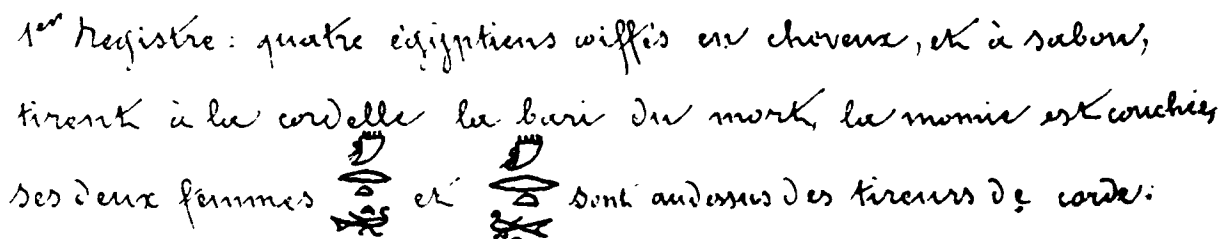 1er Registre: quatre égyptiens coiffés en cheveux, et à sabou,
tirent à la cordelle la bari du mort, la momie est couchée,
ses deux femmes et sont audessus des tireurs de corde: